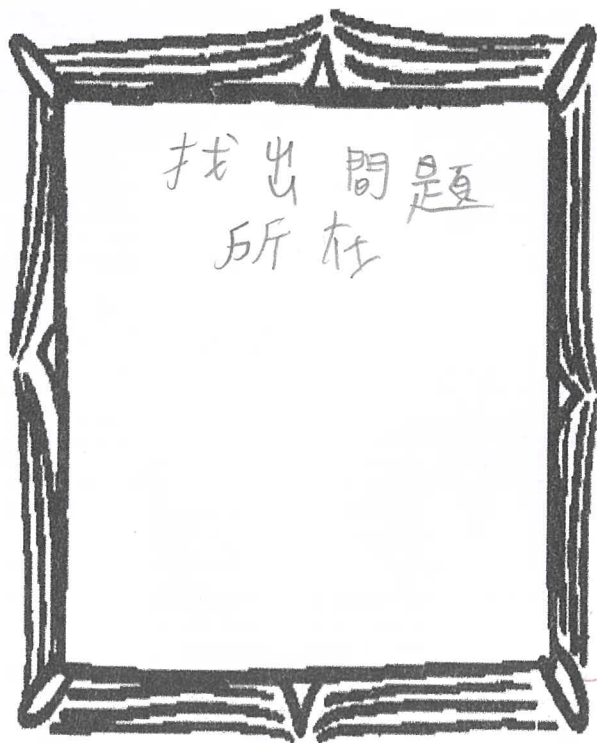 找出問題
所在